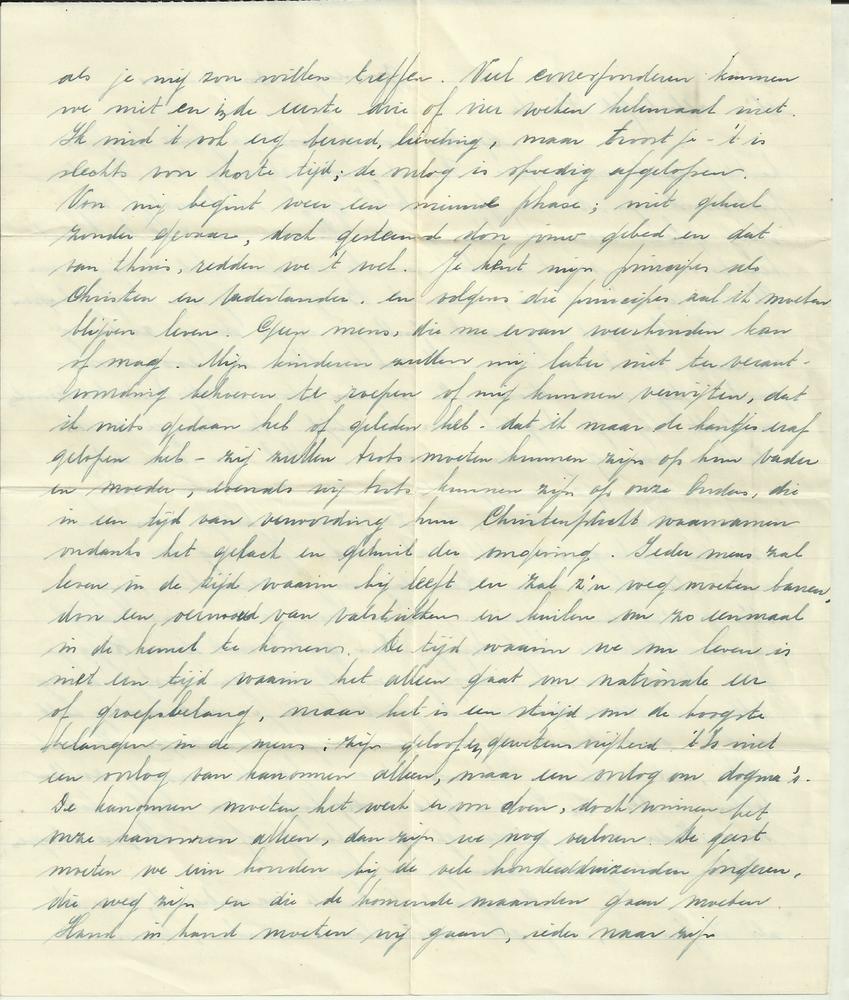 als je mij zou willen treffen. Veel correspondeeren kunnen
we niet en in de eerste drie of vier weken helemaal niet.
Ik vind 't ook erg beroerd, lieveling, maar troost je - 't is
slechts voor korte tijd; de oorlog is spoedig afgelopen.
Voor mij begint weer een nieuwe phase; niet geheel
zonder gevaar, doch gesteund door jouw gebed en dat
van thuis, redden we 't wel. Je kent mijn principes als
Christen en Vaderlander. en volgens die principes zal ik moeten
blijven leven. Geen mens, die me ervan weerhouden kan
of mag. Mijn kinderen zullen mij later niet ter verant-
woording behoeven te roepen of mij kunnen verwijten, dat
ik niets gedaan heb of geleden heb - dat ik maar de kantjes eraf
gelopen heb - zij zullen trots moeten kunnen zijn op hun vader
en moeder, evenals wij trots kunnen zijn op onze Ouders, die
in een tijd van verwording hun Christenplicht waarnamen
ondanks het gelach en gehuil der omgeving. Ieder mens zal
leven in de tijd waarin hij leeft en zal z'n weg moeten banen,
door een van valstrikken en kuilen om zo eenmaal
in de hemel te komen. De tijd waarin we nu leven is
niet een tijd waarin het alleen gaat om nationale eer
of groepsbelang, maar het is een strijd om de hoogste
belangen in de mens: zijn geloof en gewetensvrijheid. 't Is niet
een oorlog van kanonnen alleen, maar een oorlog om dogma's.
De kanonnen moeten het werk er om doen, doch winnen het
onze kanonnen alleen, dan zijn we nog verloren. De geest
moeten we erin houden bij de vele honderdduizenden jongeren,
die weg zijn en die de komende maanden gaan moeten.
Hand in hand moeten wij gaan, ieder naar zijn